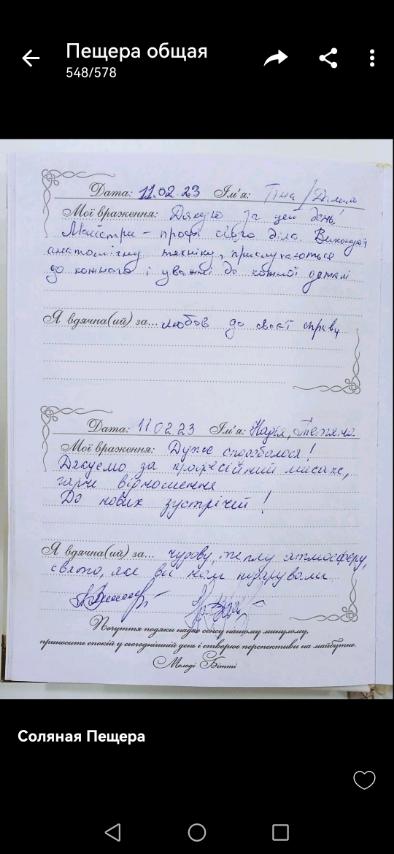 Пещера общая
548/578
Дата: 11.02.23 Ім'я: Тіна/
Мої враження: Дякую за цей день!
Майстри - профі свого діла. Виконують
анатомічну техніку, прислухаються
до кожного і уважні до кожної деталі
Я вдячна(ий) за... любов до своєї справи
Дата: 11 02 23 Ім'я: Надія, Тетяна
Мої враження: Дуже сподобалося!
Дякуємо за професійний масаж,
гарне відношення
До нових зустрічей!
Я вдячна(ий) за... чудову, теплу атмосферу,
свято, яке ви нам подарували
Почуття подяки надає сенсу нашому минулому,
приносить спокій у сьогоднішній день і створює перспективи на майбутнє.
Мелоді Бітті
Соляная Пещера